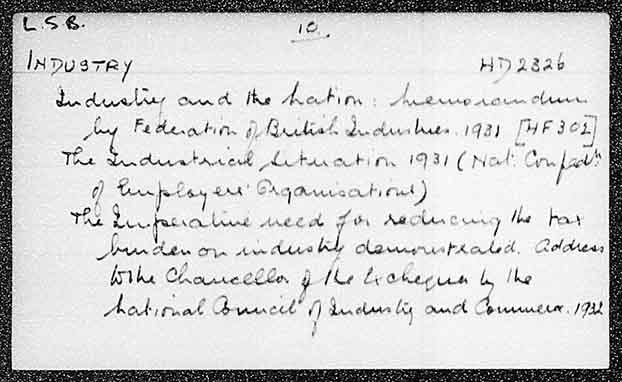 L.S.B.
10.
INDUSTRY HD 2326
Industry and the Nation: Memorandum
by Federation of British Industries. 1931 [HF 302]
The Industrial Situation 1931 (Nat. Confed.n
of Employers' Organisations)
The Imperative need for reducing the tax
burden on industry demonstrated. Address
to the Chancellor of the Exchequer by the
National Council of Industry and Commerce. 1932